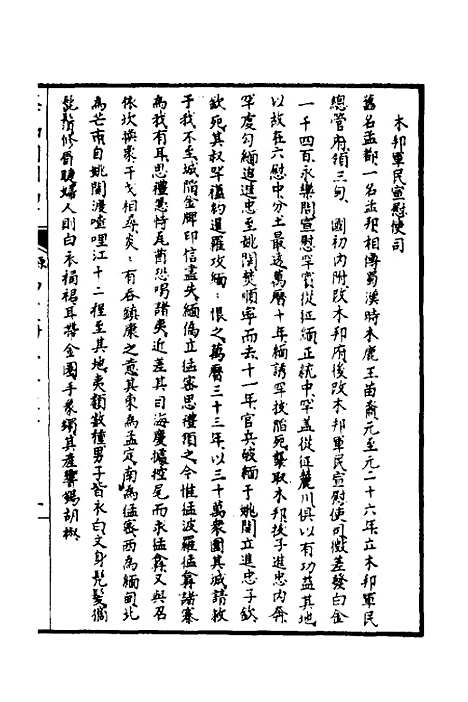 木邦軍民宣慰使司
舊名孟都一名孟邦相傳蜀漢時木鹿王苗裔元至元二十六年立木邦軍民
總管府領三甸國初內附改木邦府後改木邦軍民宣慰使司徵差發白金
一千四百永樂間宣慰罕賓從征緬正統中罕蓋從征麓川俱以有功益其地
以故在六慰中分土最遠萬曆十年緬誘罕拔陷死襲取木邦拔子進忠內奔
罕虔勾緬追進忠至姚關焚順寧而去十一年官兵破緬于姚關立進忠子欽
欽死其叔罕𥙿約暹羅攻緬緬恨之萬曆三十三年以三十萬眾圍其城請救
于我不至城陷金牌印信盡失緬偽立猛密思禮領之今惟猛波羅猛犇諸寨
為我有耳思禮恿恃尾酋恐喝諸夷近差其司海慶據控尾而求猛犇又與召
依坎換象干戈相尋矣有吞鎮康之意其東為孟定南為猛密西為緬甸北
為芒市自姚關渡喳哩江十二程至其地夷類數種男子皆衣白文身髡髮摘
髭鬚修眉睫婦人則白衣桶裙耳帶金圈手象鐲其產響錫胡椒